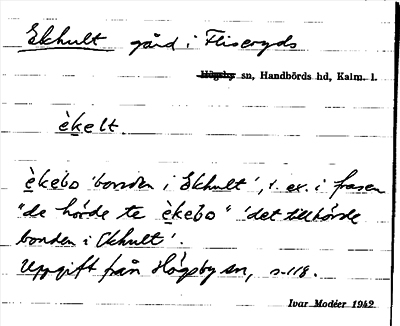 Ekhult gård i Fliseryds
Högsby sn, Handbörds hd, Kalm. l.
èkelt.
èkebo 'bonden i Ekhult', t. ex. i frasen
"de hörde te èkebo" 'det tillhörde
bonden i Ekhult'.
Uppgift från Högsby sn, s. 118.
Ivar Modéer 1942